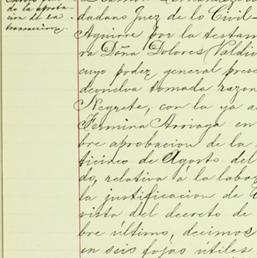 de la aproba-
ción de la
transacción.
dadano Juez de lo Civil
Aguirre por la testam
ra Doña Dolores Valdiv
cuyo poder general pres
devuelva tomada razón
Negrete, con la ya
Fermina Arriaga en
bre aprobación de la
ticinco de Agosto del
do, relativa á la labo
la justificación de
vista del decreto de
bre último, decimos
en seis fojas útiles